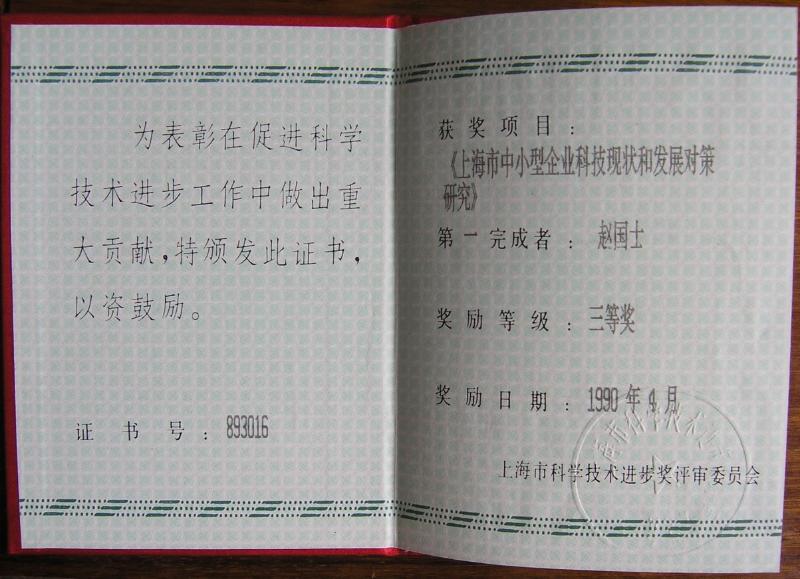 为表彰在促进科学
技术进步工作中做出重
大贡献,特颁发此证书,
以资鼓励。
证书号:893016
获奖项目:
《上海市中小型企业科技现状和发展对策
研究》
第一完成者:赵国士
奖励等级:三等奖
奖励日期:1990年4月
上海市科学技术进步奖评审委员会